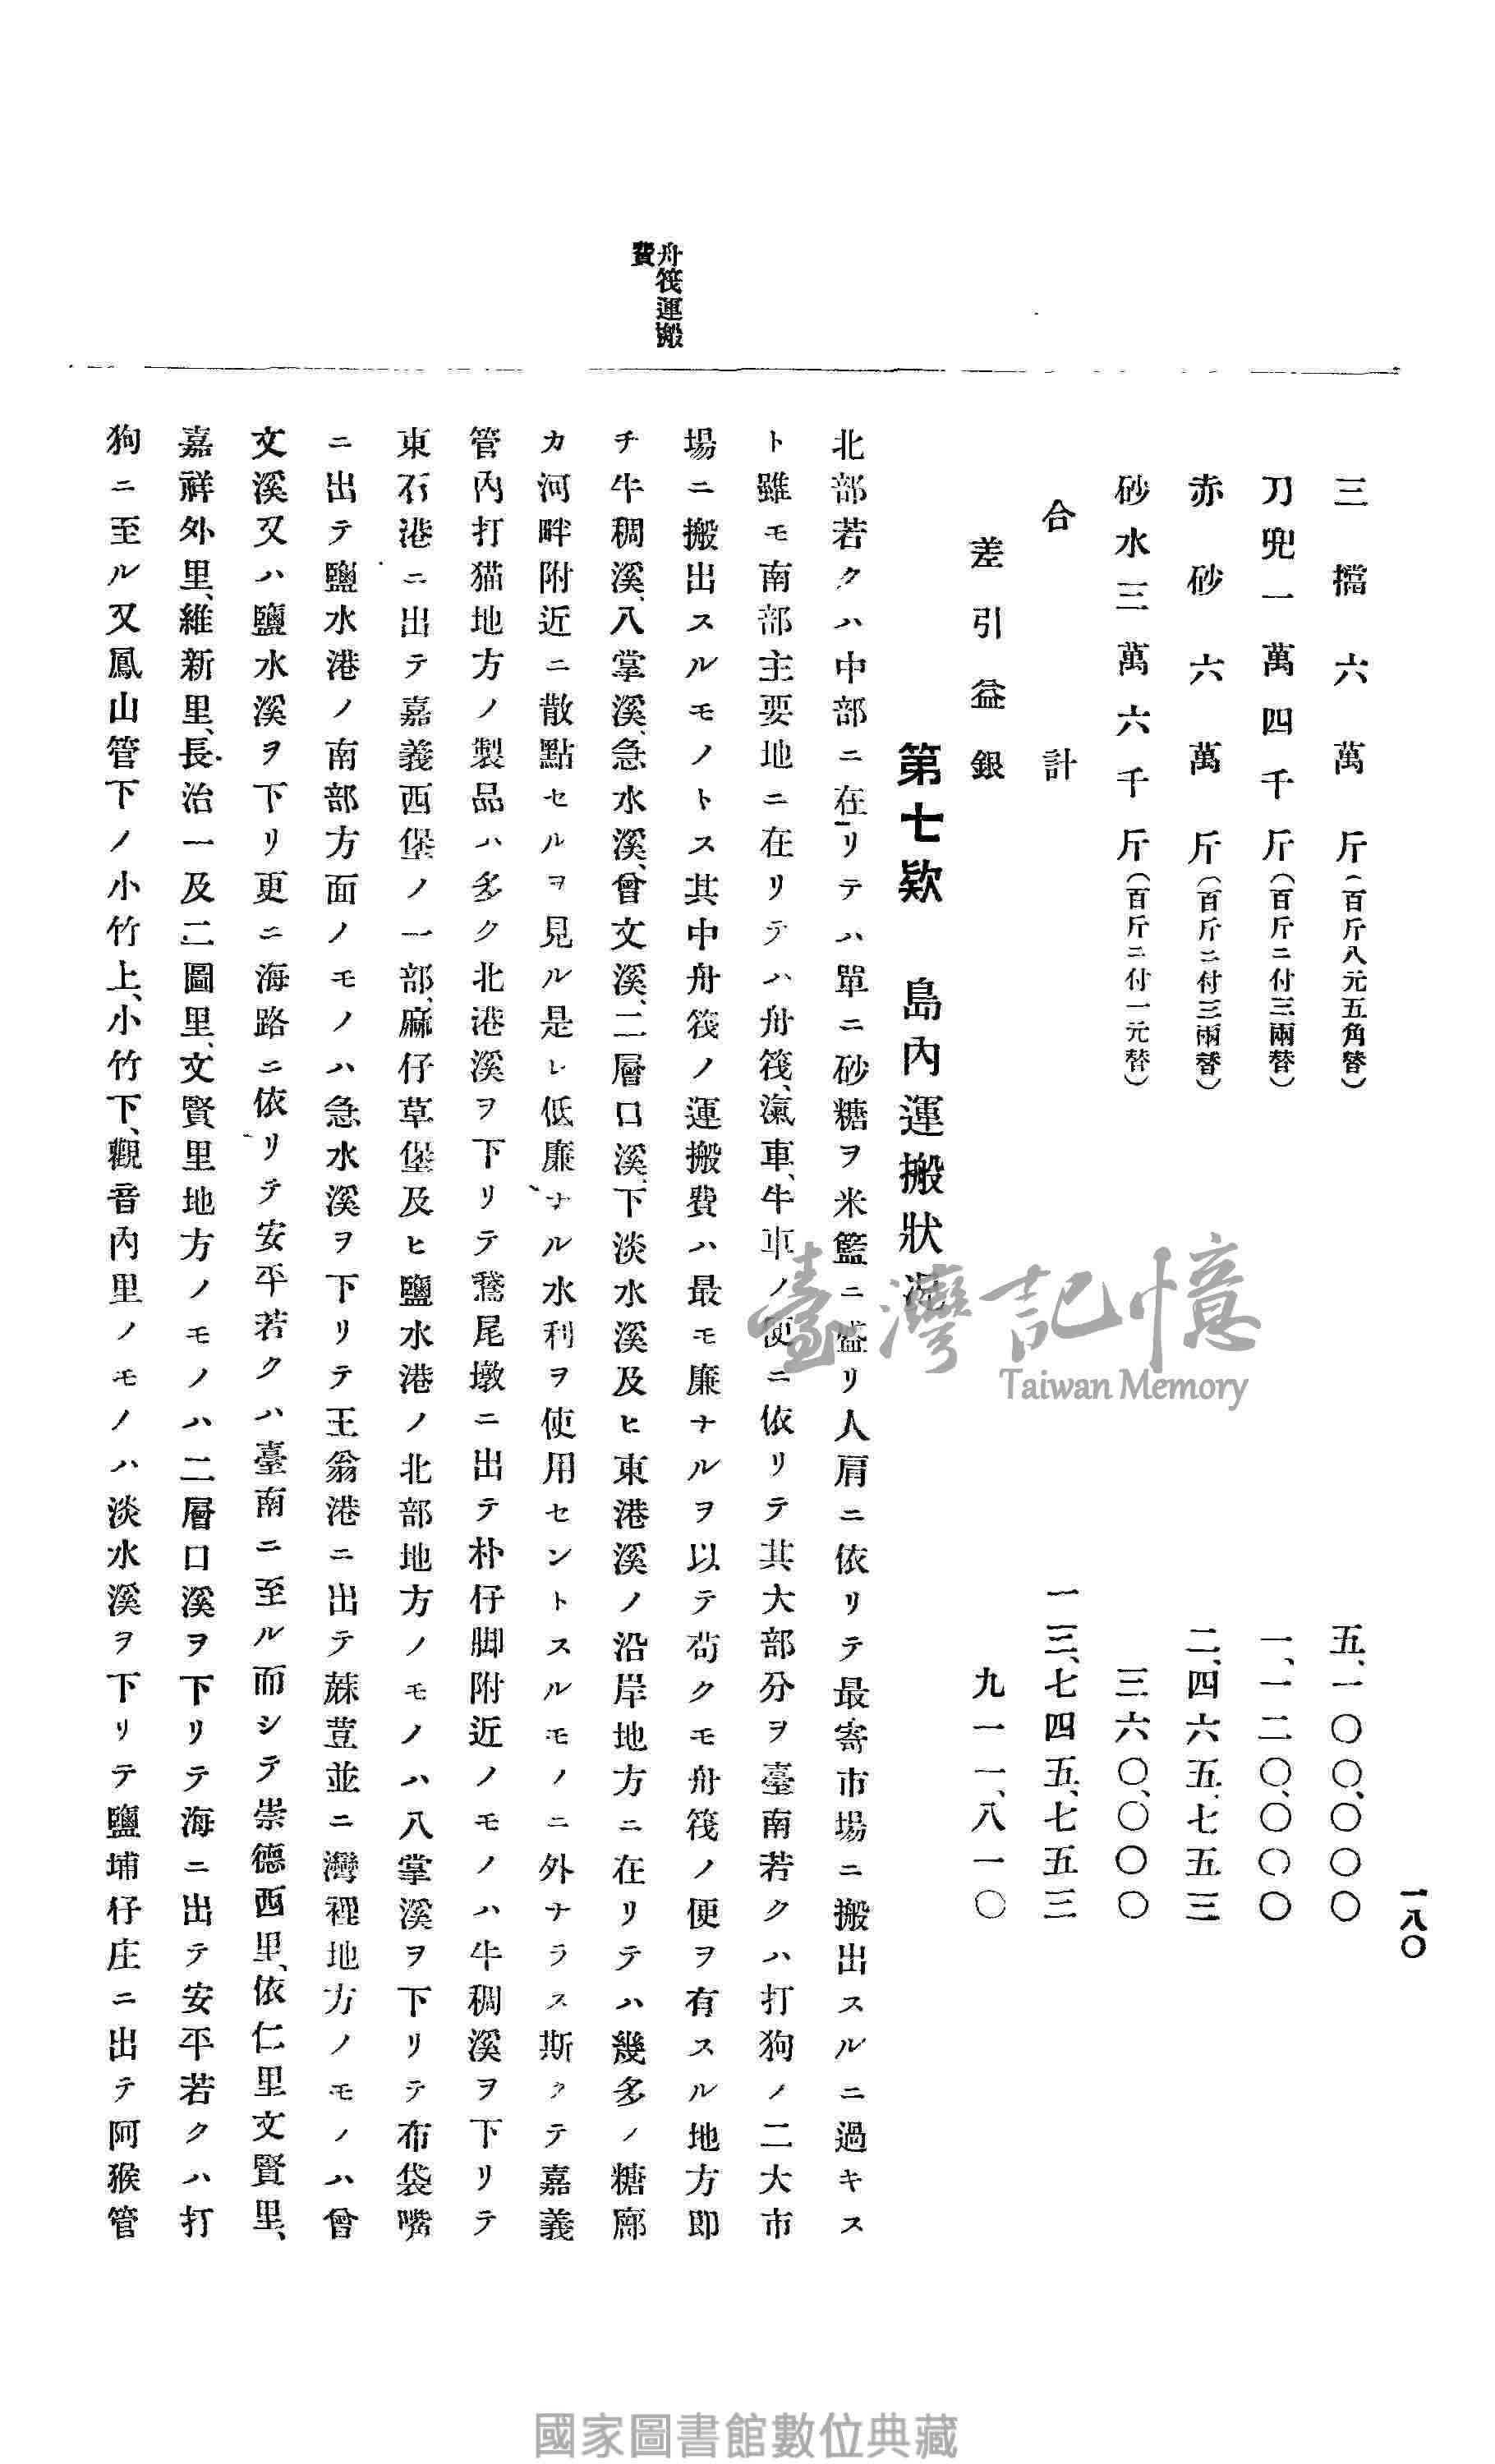 一八〇
三擋六萬斤(百斤八元五角替) 五、一〇〇、〇〇〇
刀兜一萬四千斤(百斤ニ付三兩替) 一、一二〇、〇〇〇
赤砂六萬斤(百斤ニ付三兩替) 二、四六五、七五三
砂水三萬六千斤(百斤ニ付一元替) 三六〇、〇〇〇
合計 一三、七四五、七五三
差引益銀 九一一、八一〇
第七欵 島內運搬狀況
舟筏運搬
費
北部若クハ中部ニ在リテハ單ニ砂糖ヲ米籃ニ盛リ人肩ニ依リテ最寄市場ニ搬出スルニ過キス
ト雖モ南部主要地ニ在リテハ舟筏、滊車、牛車ノ便ニ依リテ其大部分ヲ臺南若クハ打狗ノ二大市
場ニ搬出スルモノトス其中舟筏ノ運搬費ハ最モ廉ナルヲ以テ苟クモ舟筏ノ便ヲ有スル地方即
チ牛稠溪、八掌溪、急水溪、曾文溪、二層口溪、下淡水溪及ヒ東港溪ノ沿岸地方ニ在リテハ幾多ノ糖廍
カ河畔附近ニ散點セルヲ見ル是レ低廉ナル水利ヲ使用セントスルモノニ外ナラス斯クテ嘉義
管內打猫地方ノ製品ハ多ク北港溪ヲ下リテ鶖尾墩ニ出テ朴仔脚附近ノモノハ牛稠溪ヲ下リテ
東石港ニ出テ嘉義西堡ノ一部、麻仔草堡及ヒ鹽水港ノ北部地方ノモノハ八掌溪ヲ下リテ布袋嘴
ニ出テ鹽水港ノ南部方面ノモノハ急水溪ヲ下リテ王翁港ニ出テ蔴荳並ニ灣裡地方ノモノハ曾
文溪又ハ鹽水溪ヲ下リ更ニ海路ニ依リテ安平若クハ臺南ニ至ル而シテ崇德西里、依仁里文賢里、
嘉祥外里、維新里、長治一及二圖里、文賢里地方ノモノハ二層口溪ヲ下リテ海ニ出テ安平若クハ打
狗ニ至ル又鳳山管下ノ小竹上、小竹下、觀音內里ノモノハ淡水溪ヲ下リテ鹽埔仔庄ニ出テ阿猴管
臺灣記憶
Taiwan Memory
國家圖書館數位典藏